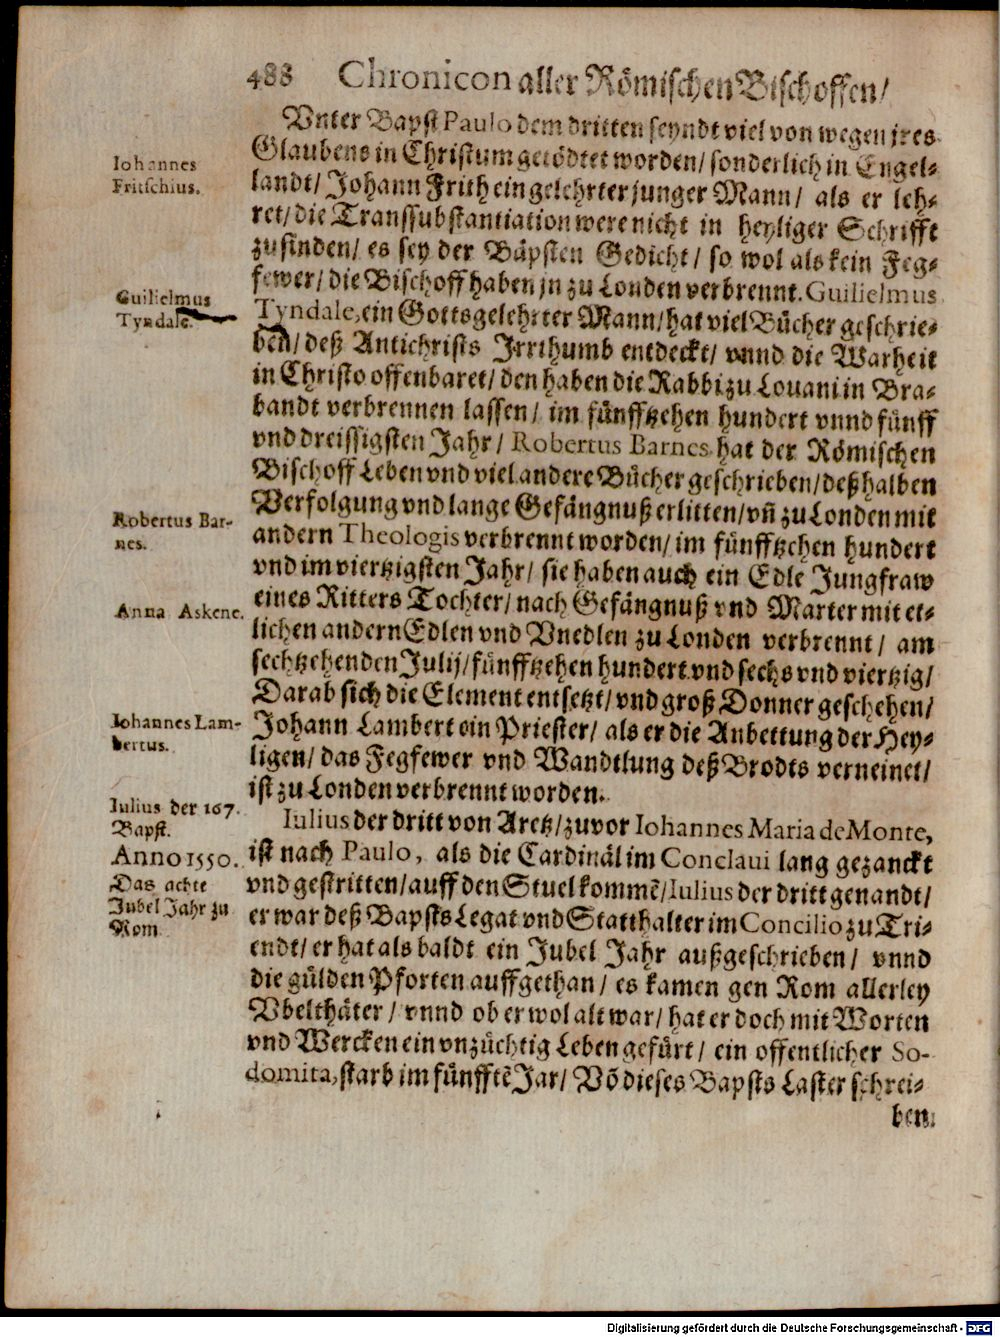 488 Chronicon aller Römischen Bischoffen/
Vnter Bapst Paulo dem dritten seyndt viel von wegen jres
Glaubens in Christum getödtet worden/ sonderlich in Engel-
landt/ Johann Frith ein gelehrter junger Mann/ als er leh-
ret/ die Transsubstantiation were nicht in heyliger Schrifft
zu finden/ es sey der Bäpsten Gedicht/ so wol als kein Feg-
fewer/ die Bischoff haben jn zu Londen verbrennt. Guilielmus
Tyndale, ein Gottsgelehrter Mann/ hat viel Bücher geschrie-
ben/ deß Antichrists Jrrthumb entdeckt/ vnnd die Warheit
in Christo offenbaret/ den haben die Rabbi zu Lovani in Bra-
bandt verbrennen lassen/ im fünfftzehen hundert vnnd fünff
vnd dreissigsten Jahr/ Robertus Barnes hat der Römischen
Bischoff Leben vnd viel andere Bücher geschrieben/ deßhalben
Verfolgung vnd lange Gefängnuß erlitten/ vñ zu Londen mit
andern Theologis verbrennt worden/ im fünfftzehen hundert
vnd im viertzigsten Jahr/ sie haben auch ein Edle Jungfraw
eines Ritters Tochter/ nach Gefängnuß vnd Marter mit et-
lichen andern Edlen vnd Vnedlen zu Londen verbrennt/ am
sechtzehenden Julij/ fünfftzehen hundert vnd sechs vnd viertzig/
Darab sich die Element entsetzt/ vnd groß Donner geschehen/
Johann Lambert ein Priester/ als er die Anbettung der Hey-
ligen/ das Fegfewer vnd Wandtlung deß Brodts verneinet/
ist zu Londen verbrennt worden.
Iulius der dritt von Aretz/ zuvor Iohannes Maria de Monte,
ist nach Paulo, als die Cardinäl im Conclaui lang gezanckt
vnd gestritten/ auff den Stuel kommẽ/ Iulius der dritt genandt/
er war deß Bapsts Legat vnd Statthalter im Concilio zu Tri-
endt/ er hat als baldt ein Jubel Jahr außgeschrieben/ vnnd
die gülden Pforten auffgethan/ es kamen gen Rom allerley
Vbelthäter/ vnnd ob er wol alt war/ hat er doch mit Worten
vnd Wercken ein vnzüchtig Leben gefürt/ ein offentlicher So-
domita, starb im fünfftẽ Jar/ Võ dieses Bapsts Laster schrei-
ben
Iohannes
Fritschius.
Guilielmus
Tyndale.
Robertus Bar-
nes.
Anna Askene.
Iohannes Lam-
bertus.
Iulius der 167.
Bapst.
Anno 1550.
Das achte
Jubel Jahr zu
Rom
Digitalisierung gefördert durch die Deutsche Forschungsgemeinschaft - DFG